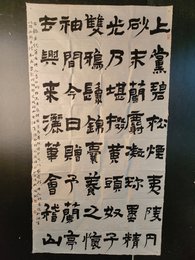 上黨碧松煙夷陵丹
砂末蘭麝凝珍墨精
光乃堪掇黃頭奴子
雙鴉鬟錦囊養之懷
袖間今日贈予蘭亭
去興來灑筆會稽山